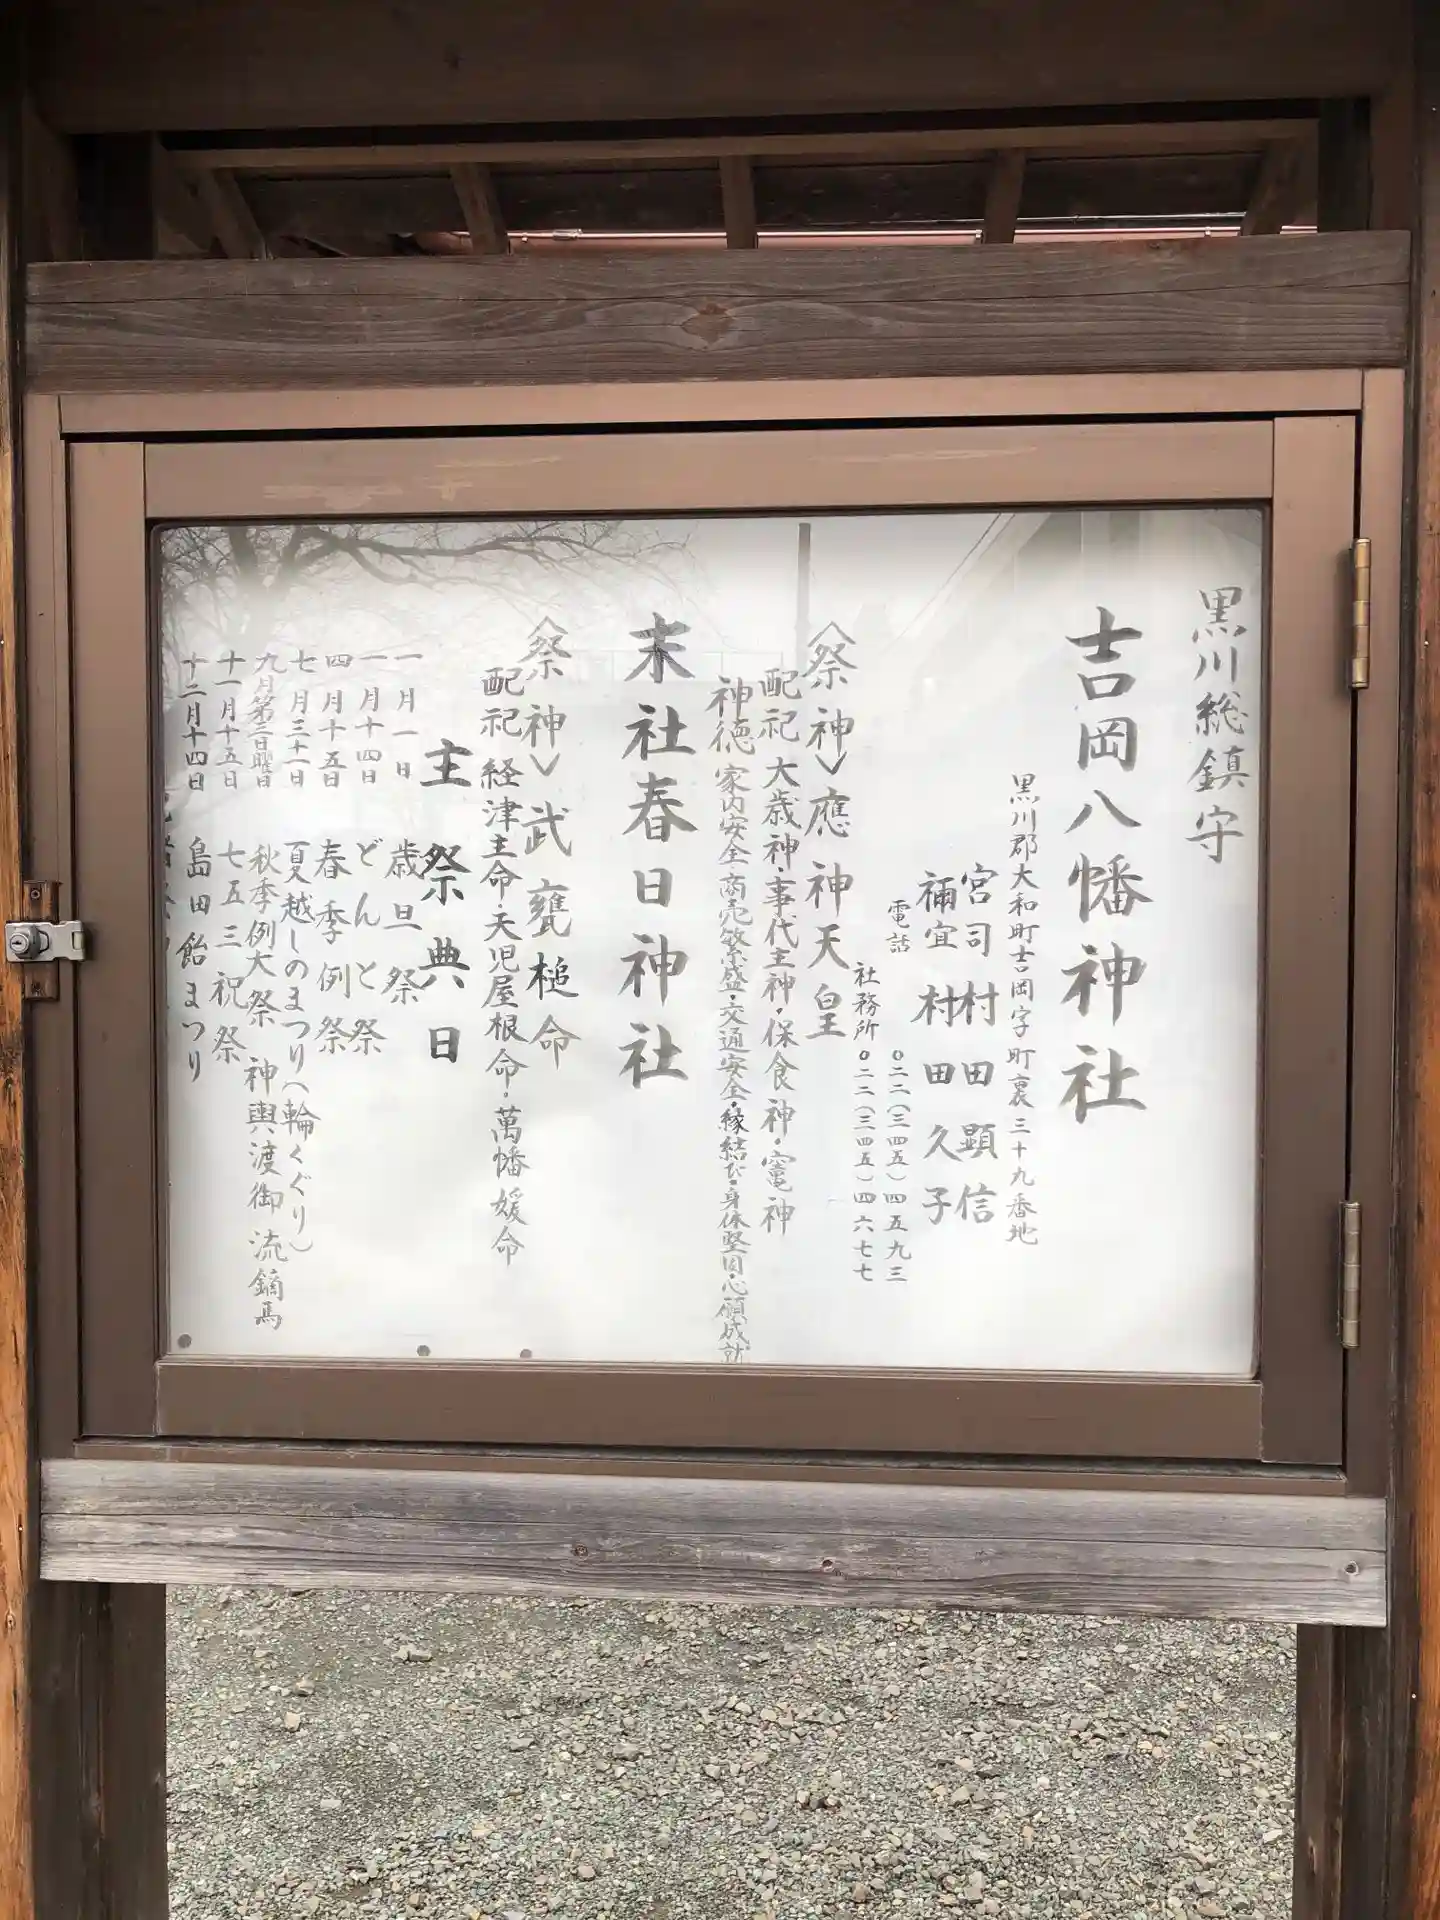 黒川総鎮守
吉岡八幡神社
黒川郡大和町吉岡字町裏三十九番地
宮司 村田 顕信
禰宜 村田 久子
電話 〇二二(三四五)四五九三
社務所 〇二二(三四五)四六七七
〈祭神〉應神天皇
配祀 大歳神・事代主神・保食神・竈神
神徳 家内安全・商売繁盛・交通安全・縁結び・身体堅固・心願成就
末社春日神社
〈祭神〉武甕槌命
配祀 経津主命・天児屋根命・萬幡媛命
主祭典日
一月一日 歳旦祭
一月十四日 どんと祭
四月十五日 春季例祭
七月三十一日 夏越しのまつり(輪くぐり)
九月第三日曜日 秋季例大祭 神輿渡御 流鏑馬
十一月十五日 七五三祝祭
十二月十四日 島田飴まつり